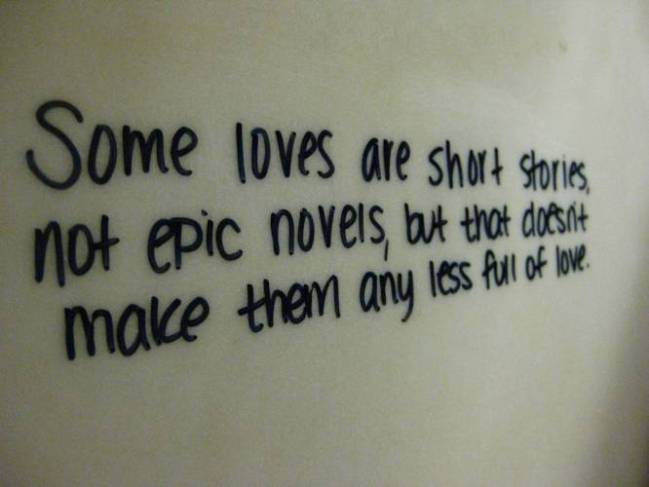 Some loves are short stories,
not epic novels, but that doesn't
make them any less full of love.